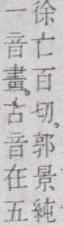 徐亡百切。郭景純
一音畫。古音在五